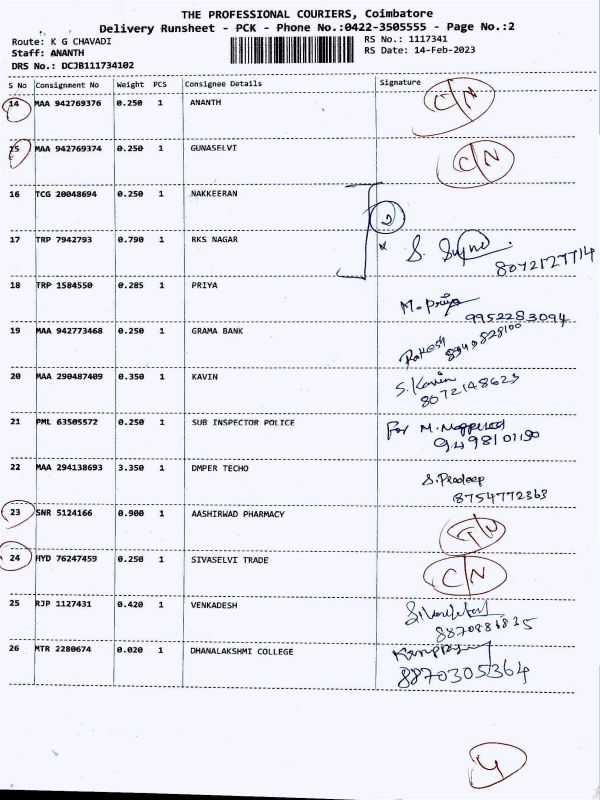 THE PROFESSIONAL COURIERS, Coimbatore
Delivery Runsheet - PCK - Phone No.:0422-3505555 - Page No.:2
Route: K G CHAVADI RS No.: 1117341
Staff: ANANTH RS Date: 14-Feb-2023
DRS No.: DCJB111734102
S No Consignment No Weight PCS Consignee Details Signature
14 MAA 942769376 0.250 1 ANANTH C/N
15 MAA 942769374 0.250 1 GUNASELVI C/N
16 TCG 20048694 0.250 1 NAKKEERAN
2
17 TRP 7942793 0.790 1 RKS NAGAR S.
18 TRP 1584550 0.285 1 PRIYA M. Priya
9952283094
19 MAA 942773468 0.250 1 GRAMA BANK Rakesh
20 MAA 290487409 0.350 1 KAVIN S. Kavin
8072148623
21 PML 63505572 0.250 1 SUB INSPECTOR POLICE For M.
9498101190
22 MAA 294138693 3.350 1 DMPER TECHO S. Pradeep
8754772363
23 SNR 5124166 0.900 1 AASHIRWAD PHARMACY
24 HYD 76247459 0.250 1 SIVASELVI TRADE C/N
25 RJP 1127431 0.420 1 VENKADESH
8870886825
26 MTR 2280674 0.020 1 DHANALAKSHMI COLLEGE
8870305364
4